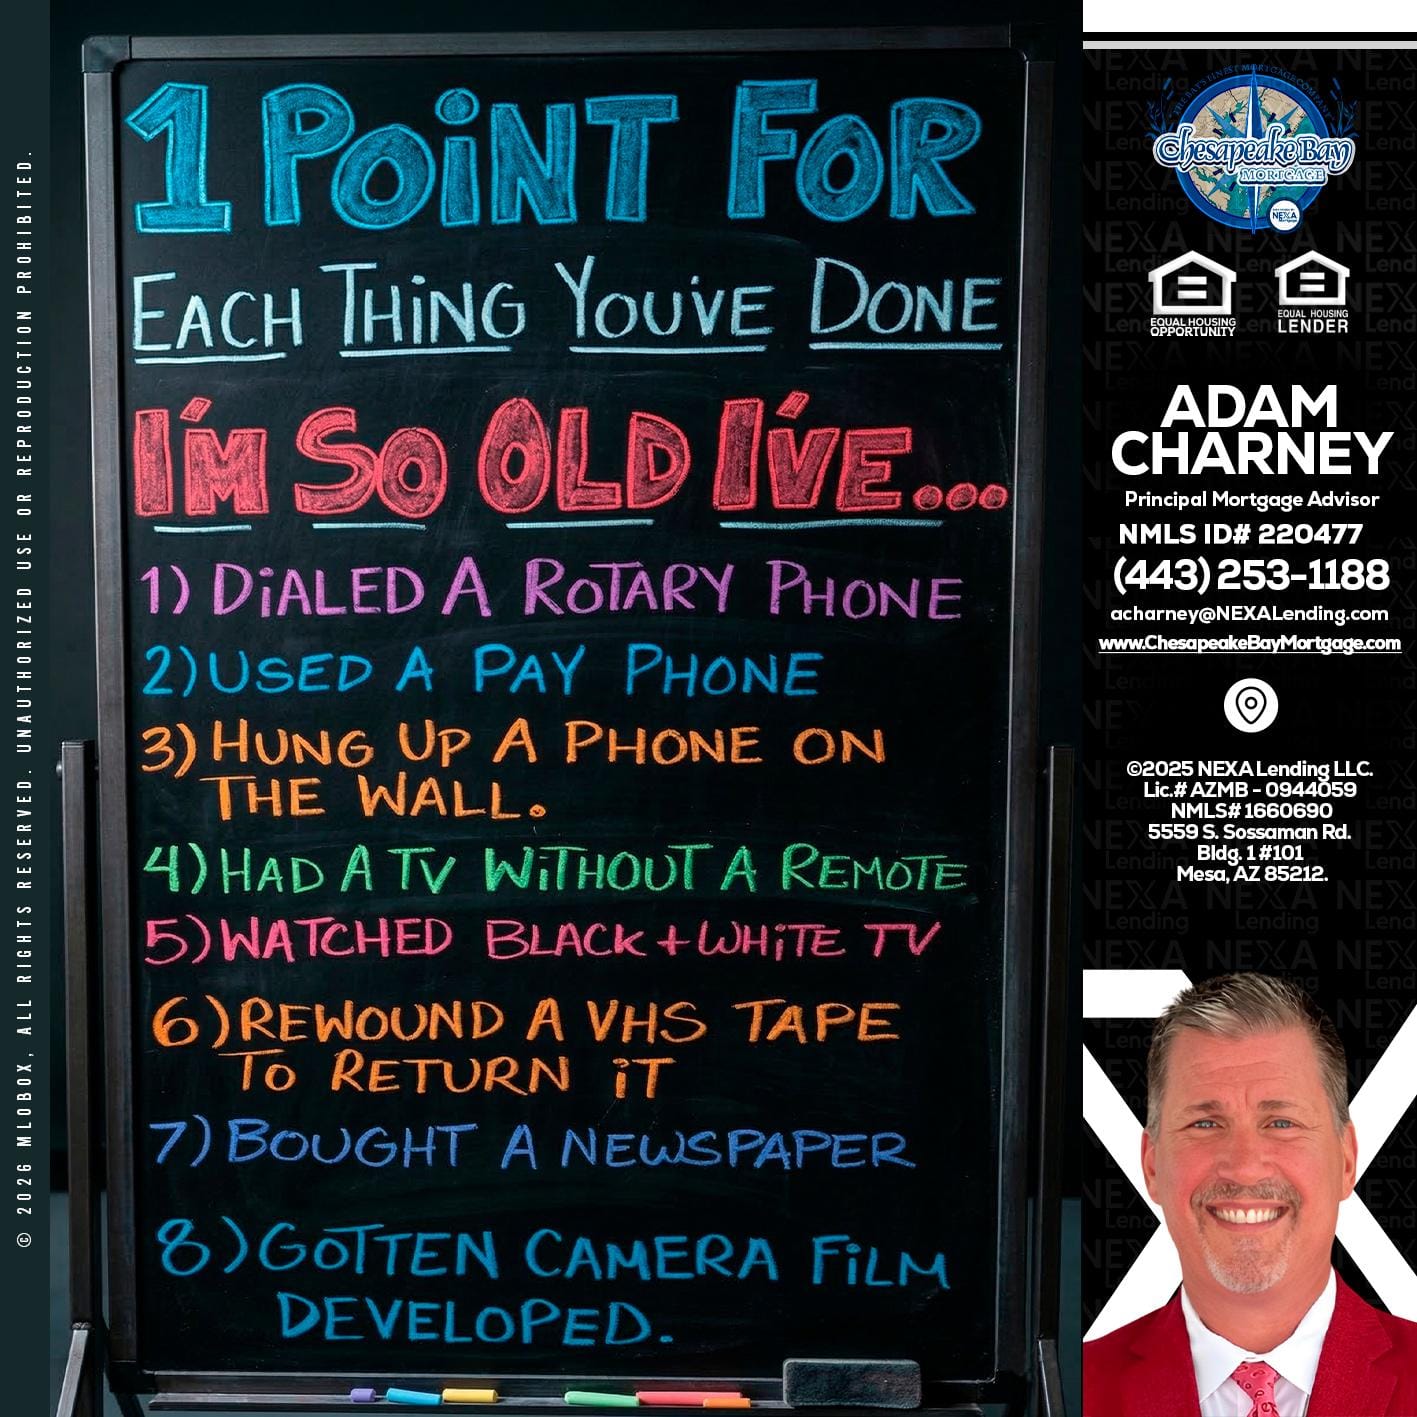 1 POINT FOR
EACH THING YOU'VE DONE
I'M SO OLD I'VE...
1) DIALED A ROTARY PHONE
2) USED A PAY PHONE
3) HUNG UP A PHONE ON
THE WALL.
4) HAD A TV WITHOUT A REMOTE
5) WATCHED BLACK + WHITE TV
6) REWOUND A VHS TAPE
TO RETURN IT
7) BOUGHT A NEWSPAPER
8) GOTTEN CAMERA FILM
DEVELOPED.
© 2026 MLOBOX, ALL RIGHTS RESERVED. UNAUTHORIZED USE OR REPRODUCTION PROHIBITED.
THE BAY'S FINEST MORTGAGE COMPANY
Chesapeake Bay
MORTGAGE
NEXA
Mortgage
EQUAL HOUSING
OPPORTUNITY
EQUAL HOUSING
LENDER
ADAM
CHARNEY
Principal Mortgage Advisor
NMLS ID# 220477
(443) 253-1188
acharney@NEXALending.com
www.ChesapeakeBayMortgage.com
©2025 NEXA Lending LLC.
Lic.# AZMB - 0944059
NMLS# 1660690
5559 S. Sossaman Rd.
Bldg. 1 #101
Mesa, AZ 85212.